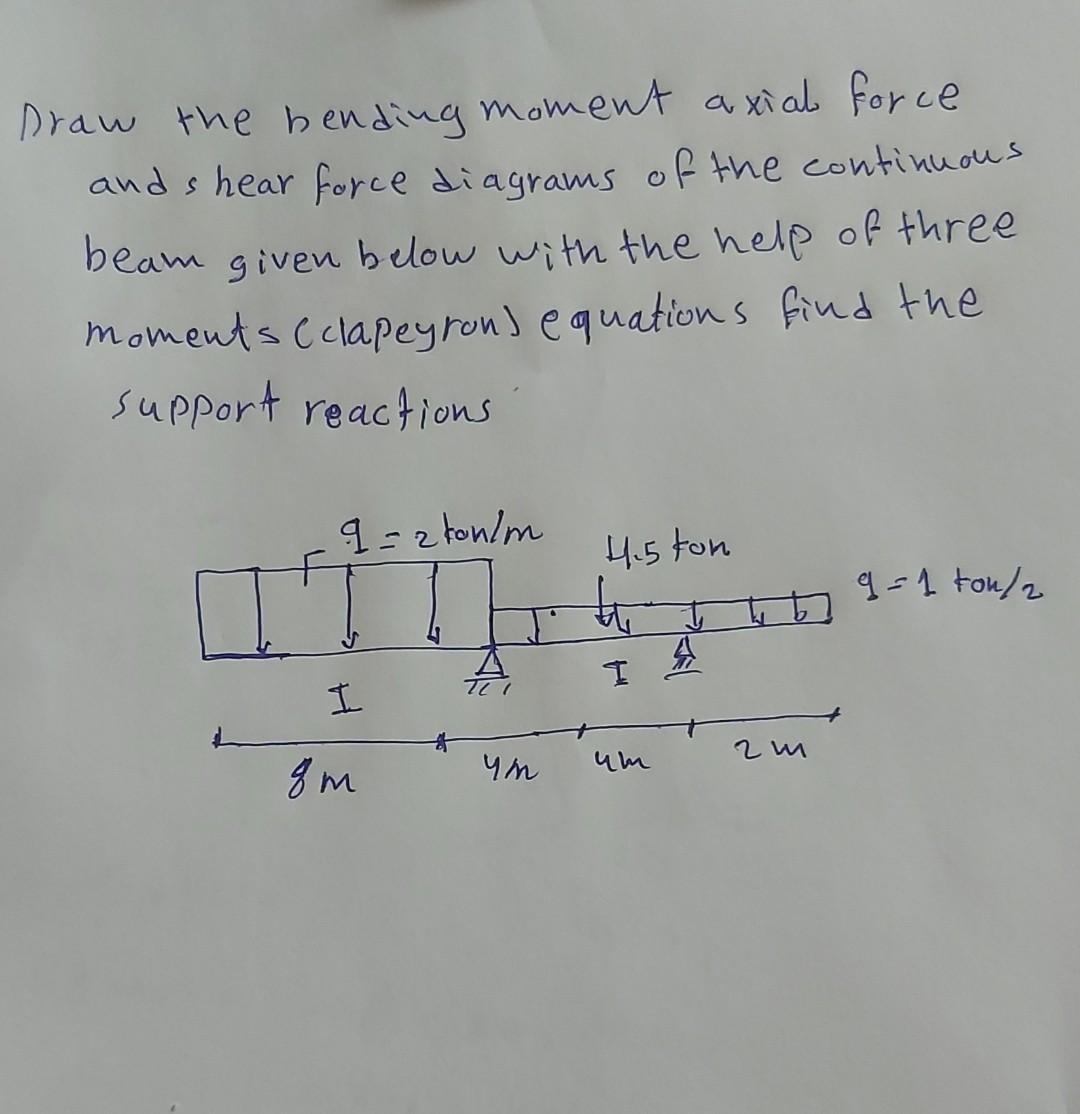 Draw the bending moment axial force
and shear force diagrams of the continuous
beam given below with the help of three
moments (clapeyron) equations find the
support reactions
q = 2 ton/m
4.5 ton
q = 1 ton/2
I
I
8m
4m
4m
2m